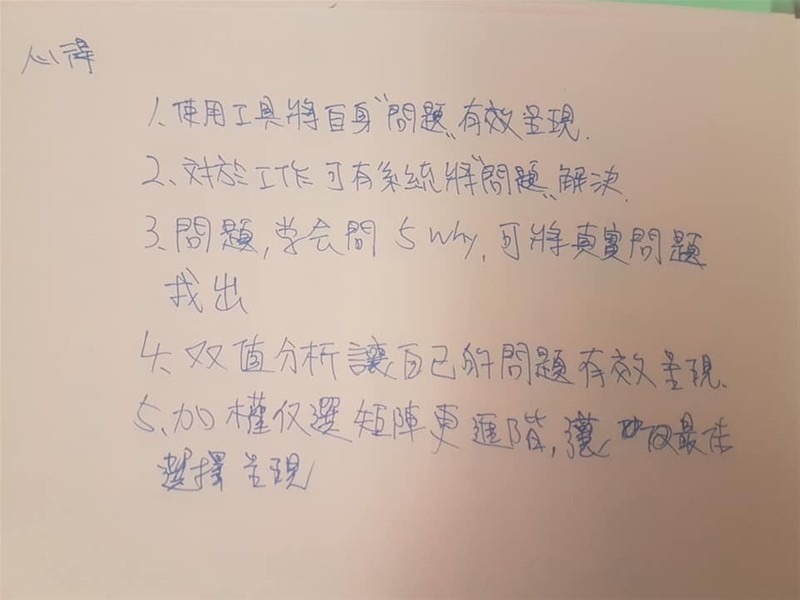 心得
1、使用工具將自身"問題"有效呈現.
2、对於工作可有系統將"問題"解決.
3、問題,学会問5 Why,可將真實問題
找出
4、双值分析讓自己的問題有效呈現.
5、加權仅選矩陣更進階,讓 最佳
選擇呈現